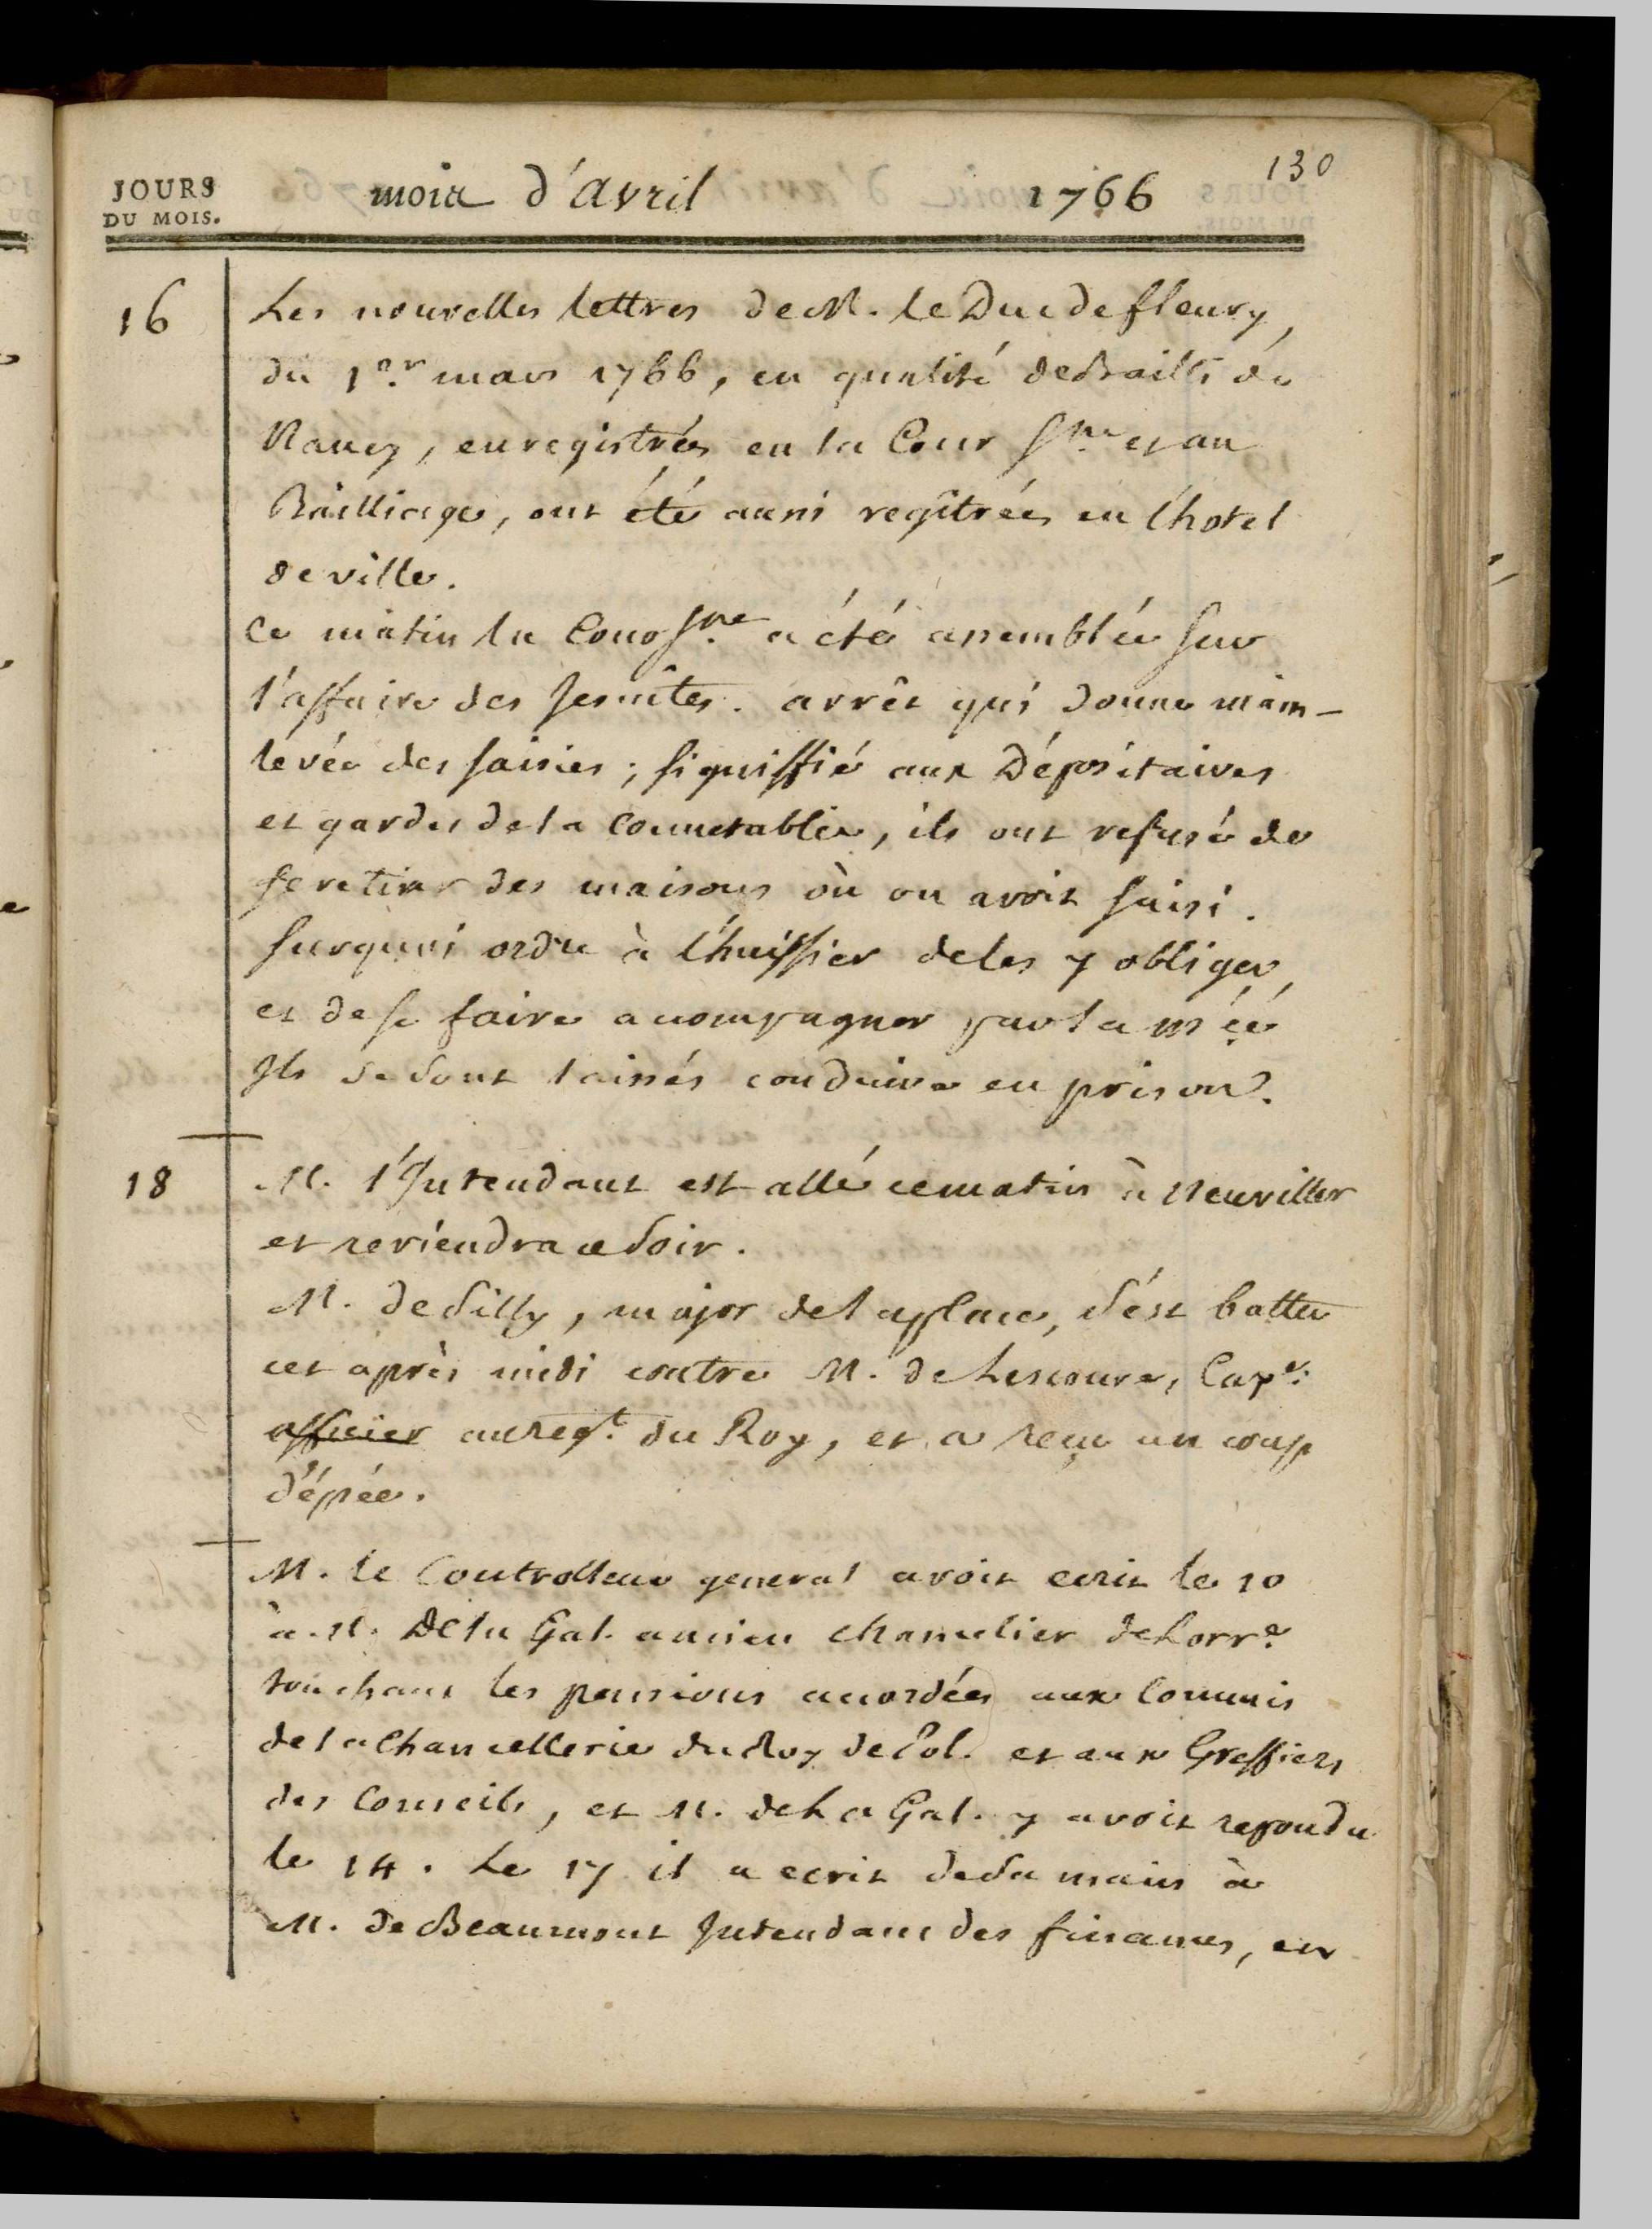 130
JOURS
DU MOIS.
mois d'avril 1766
16 Les nouvelles lettres de M. le Duc de fleury,
du 1er. mars 1766, en qualité de Bailli de
Nancy, enregistrées en la Cour Sne. et au
Bailliage, ont été aussi regîtrées en l'hotel
de ville.
Ce matin la Cour Sne. a été assemblée sur
l'affaire des Jesuîtes. arrêt qui donne main-
levée des saisies; signiffié aux Dépositaires
et gardes de la Connetablie, ils ont refusé de
se retirer des maisons où on avoit saisi.
surquoi ordre à l'huissier de les y obliger,
et de se faire acompagner par la m.éé
Ils se sont laissés conduire en prison.
18 M. l'Intendant est allé ce matin à Neuviller
et reviendra ce soir.
M. de Silly, major de la place, s'est battu
cet après midi contre M. de Lescours, Cape.
officier au regt. du Roy, et a reçu un coup
d'épée.
M. le Controlleur general avoit ecrit le 10
à M. De la Gal. ancien chancelier de Lorre.
touchant les pensions acordées aux Commis
de la Chancellerie du Roy de Pol. et aux Greffiers
des Conseils, et M. de La Gal. y avoit repondu
le 14. Le 17 il a ecrit de sa main à
M. de Beaumont Intendant des finances, en